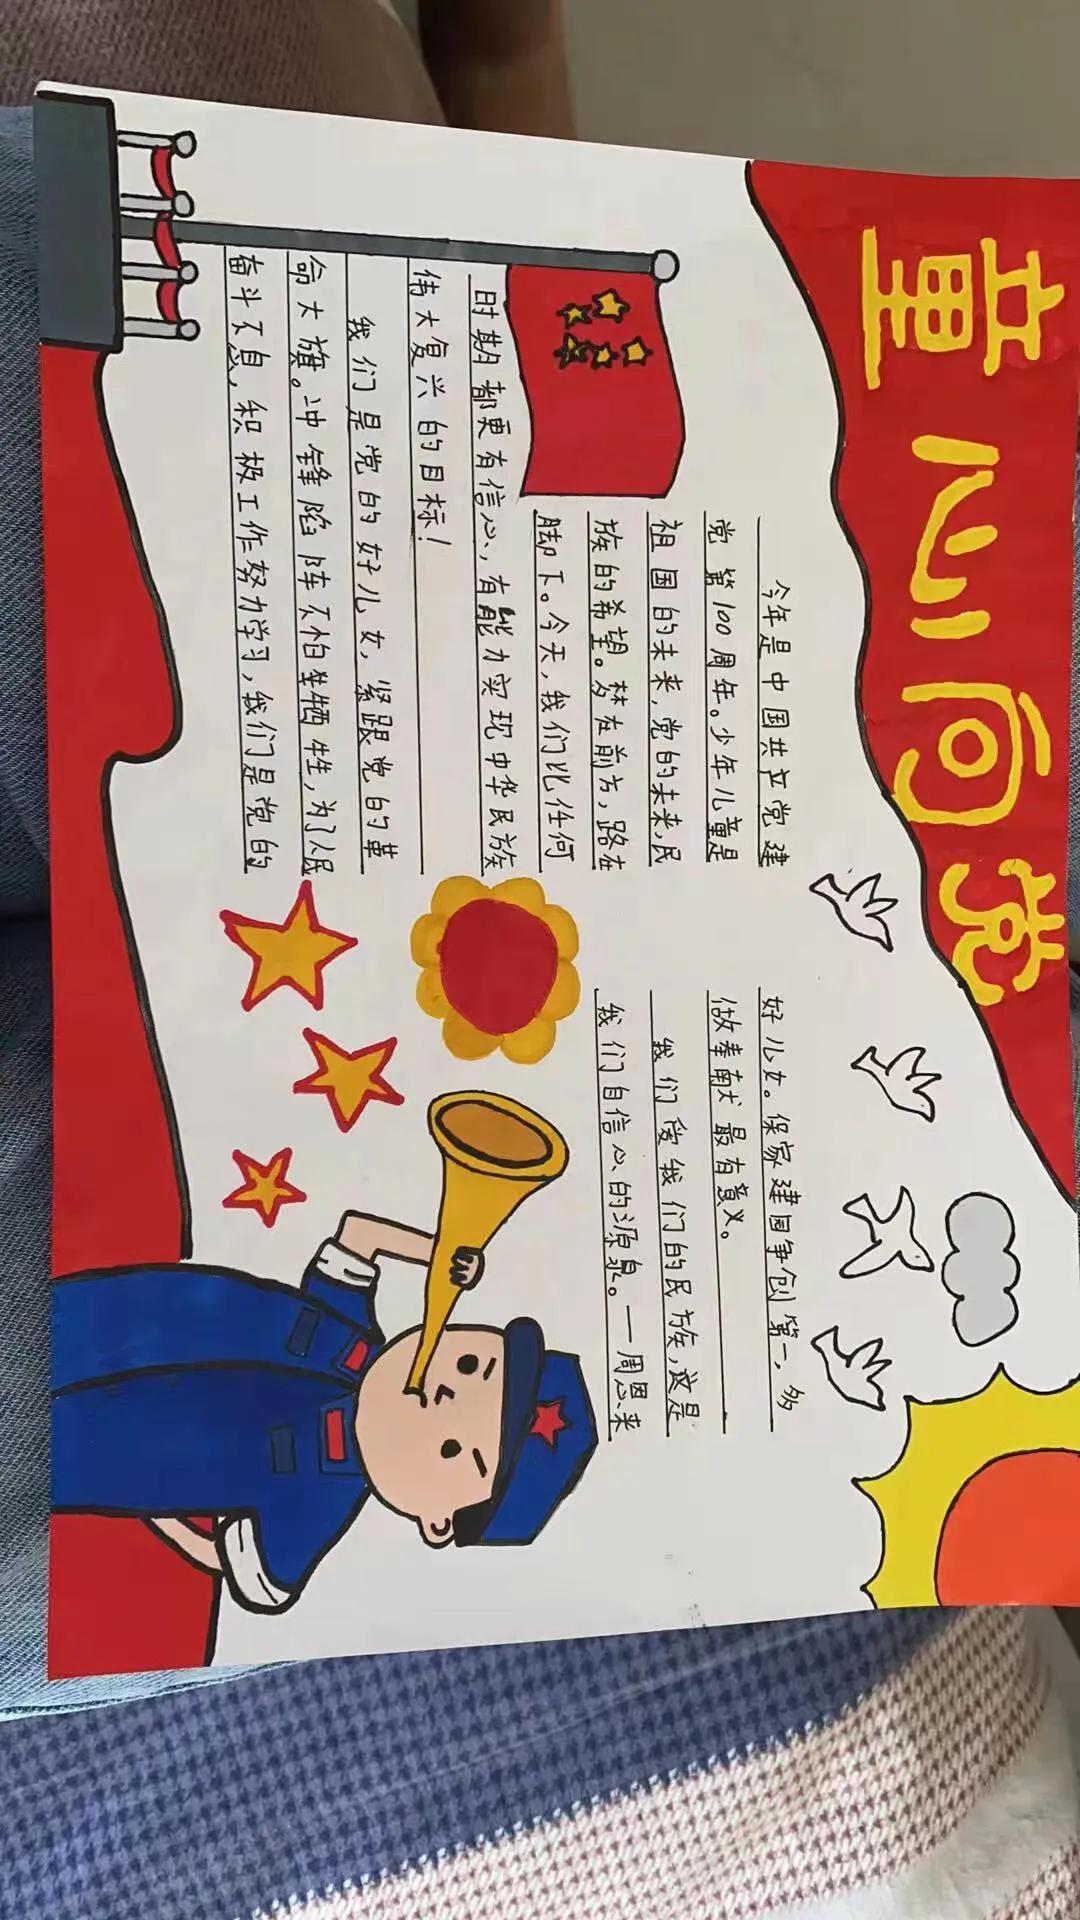 童心向党
今年是中国共产党建
党第100周年。少年儿童是
祖国的未来，党的未来，民
族的希望。梦在前方，路在
脚下。今天，我们比任何
时期都更有信心，有能力实现中华民族
伟大复兴的目标！
我们是党的好儿女，紧跟党的革
命大旗。冲锋陷阵不怕牺牲，为了人民
奋斗不息，积极工作努力学习，我们是党的
好儿女。保家建国争创第一，多
做奉献最有意义。
我们爱我们的民族，这是
我们自信心的源泉。——周恩来